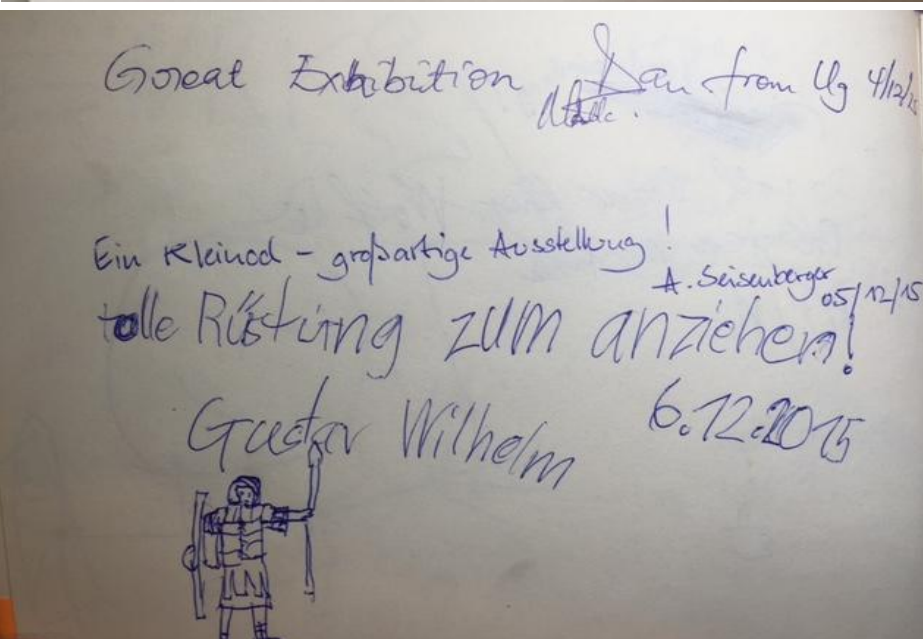 Great Exhibition Dan from Ug 4/12/15
Ein Kleinod – großartige Ausstellung!
A. Seisenberger 05/12/15
tolle Rüstung zum anziehen!
6.12.2015
Gustav Wilhelm